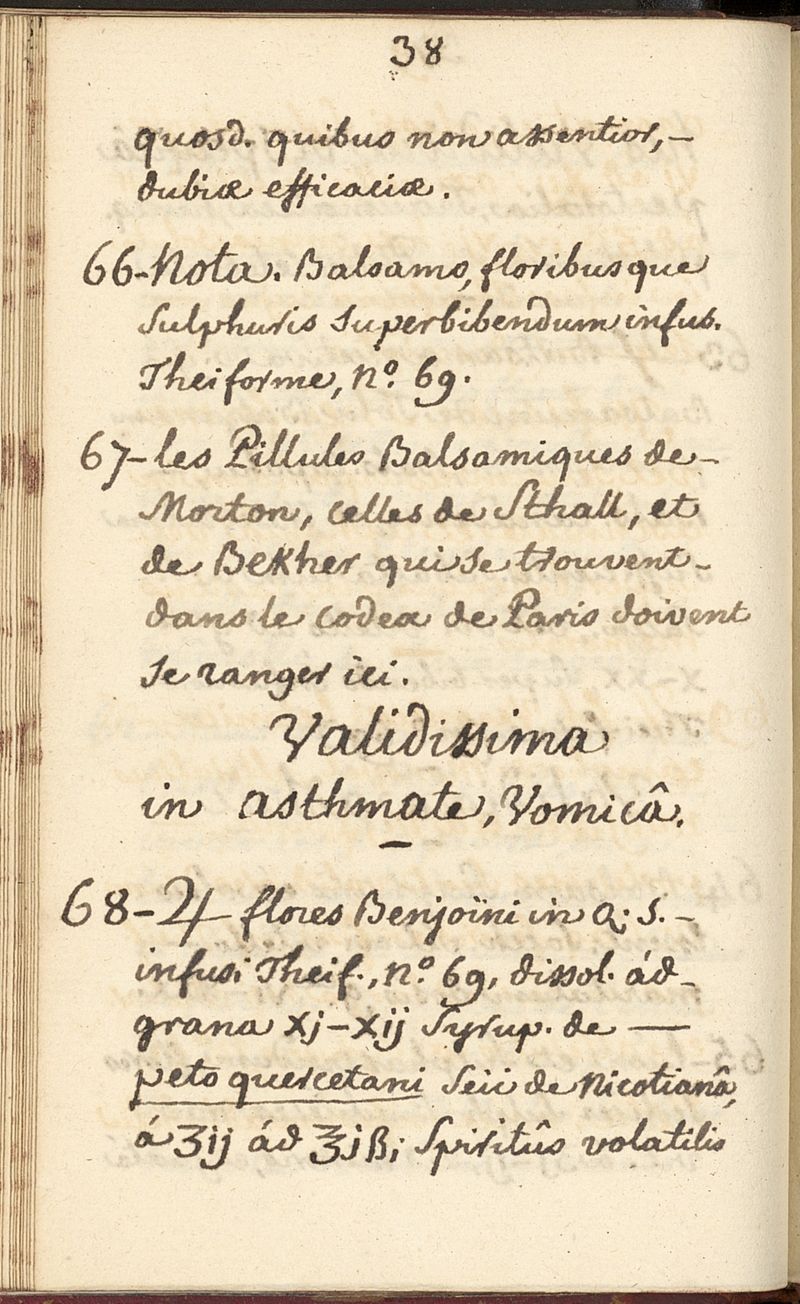 38
quosd. quibus non assentior, -
dubiæ efficaciæ.
66 - Nota. Balsamo, floribusque
sulphuris superbibendum infus.
Theiforme, nº. 69.
67 - les Pillules Balsamiques de -
Morton, celles de Sthall, et
de Bekher qui se trouvent -
dans le codex de Paris doivent
se ranger ici.
Validissima
in asthmate, Vomicâ.
68 - ♃ flores Benjoïni in q; s. -
infusi Theif., nº. 69, dissol. ád -
grana xj - xij Syrup. de —
peto quercetani seù de Nicotianâ,
á ʒij ád ℥jß; Spiritûs volatilis